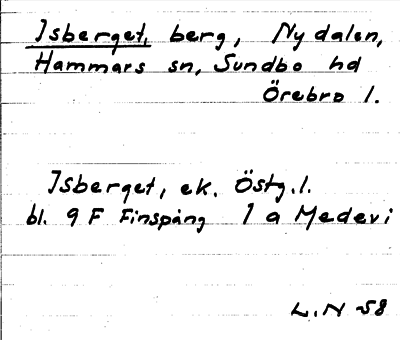 Isberget, berg, Nydalen,
Hammars sn, Sundbo hd
Örebro l.
Isberget, ek. Östg.l.
bl. 9 F Finspång 1 a Medevi
L.N 58